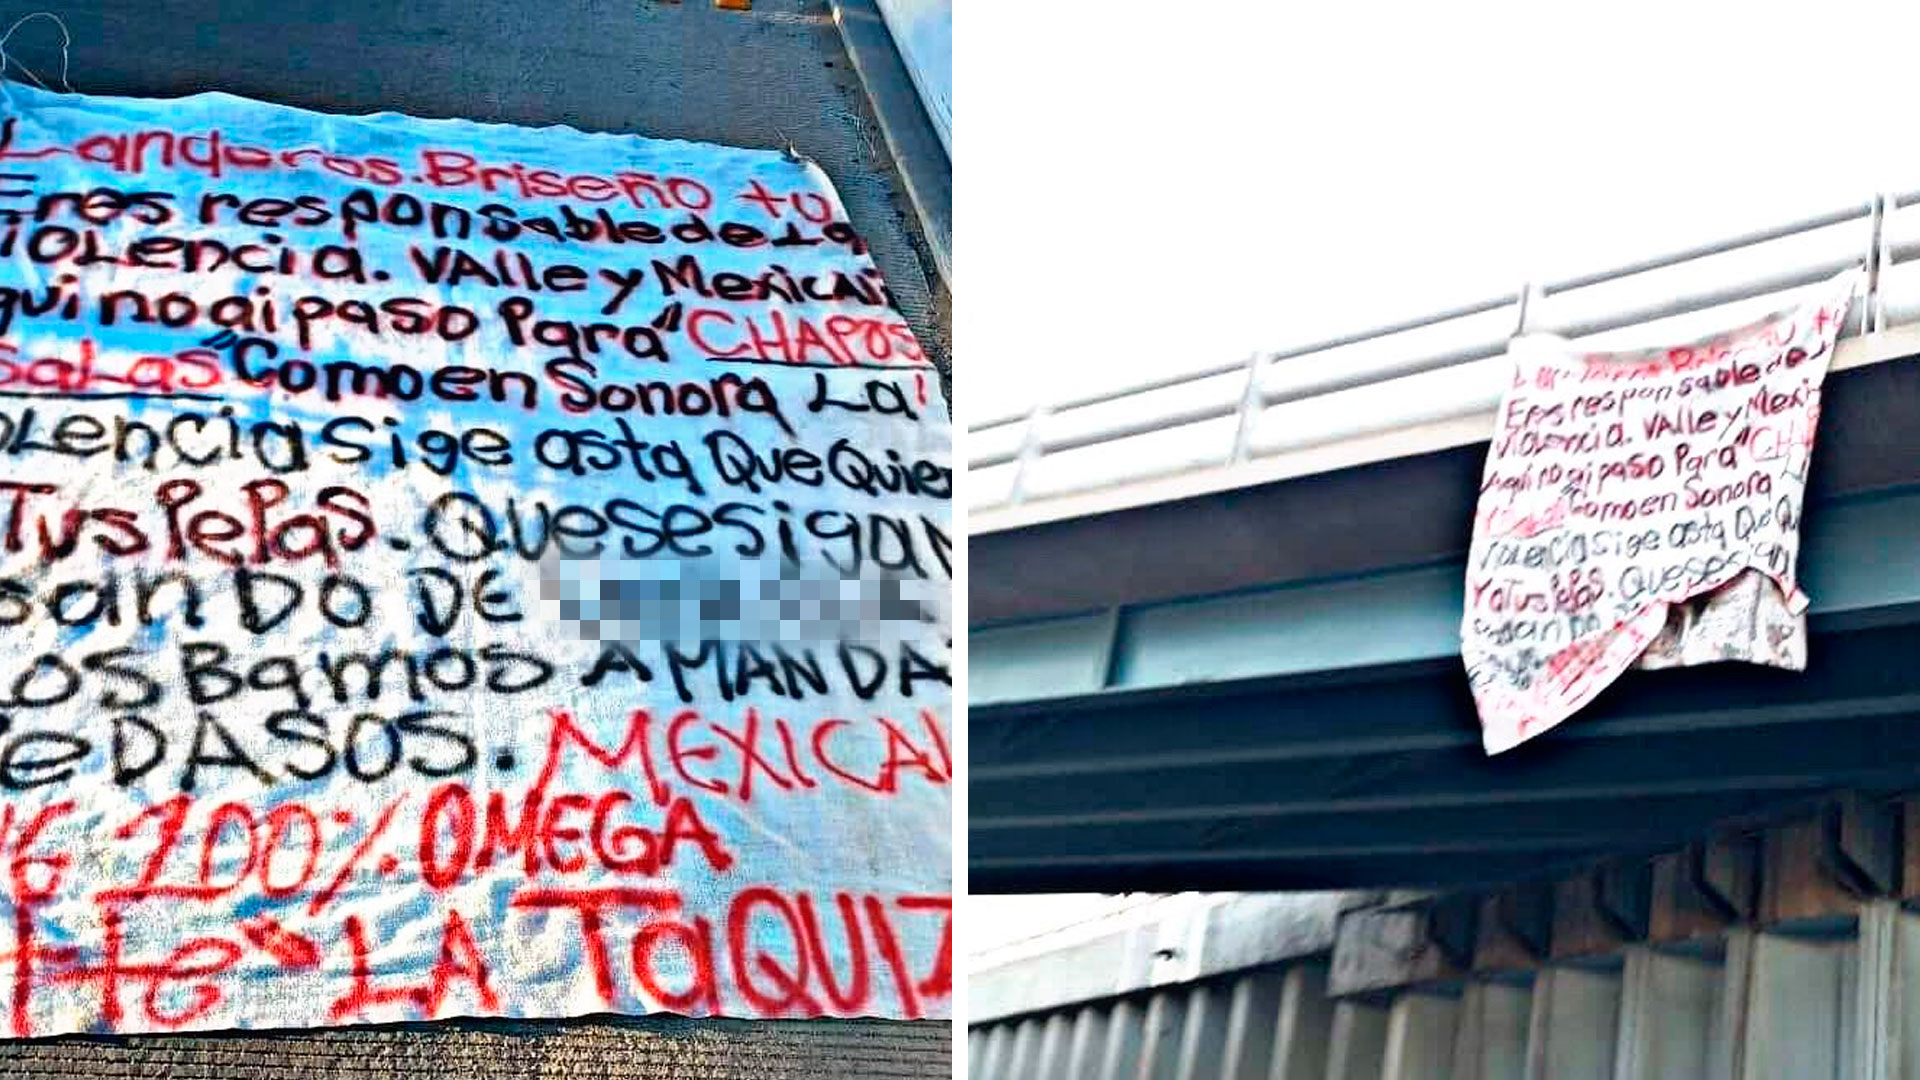 Landoros.Briseño tu
Eres responsable de La
violencia. VAlle y MexicAli
Aqui no ai paso Para "CHAPOS
SaLas" Como en Sonora La
violencia sige asta Que Quier
Tus PePas. Que se sigan
sanDo DE
Los Bamos A MANDA
PeDASOS. MEXICAL
100% OMEGA
LA TaQUIZ
Eres responsable de L
violencia. VAlle y Mexi
Aqui no ai paso Para "CHA
Como en Sonora L
violencia sige asta Que Qu
Ya Tus PePas. Que se sigan